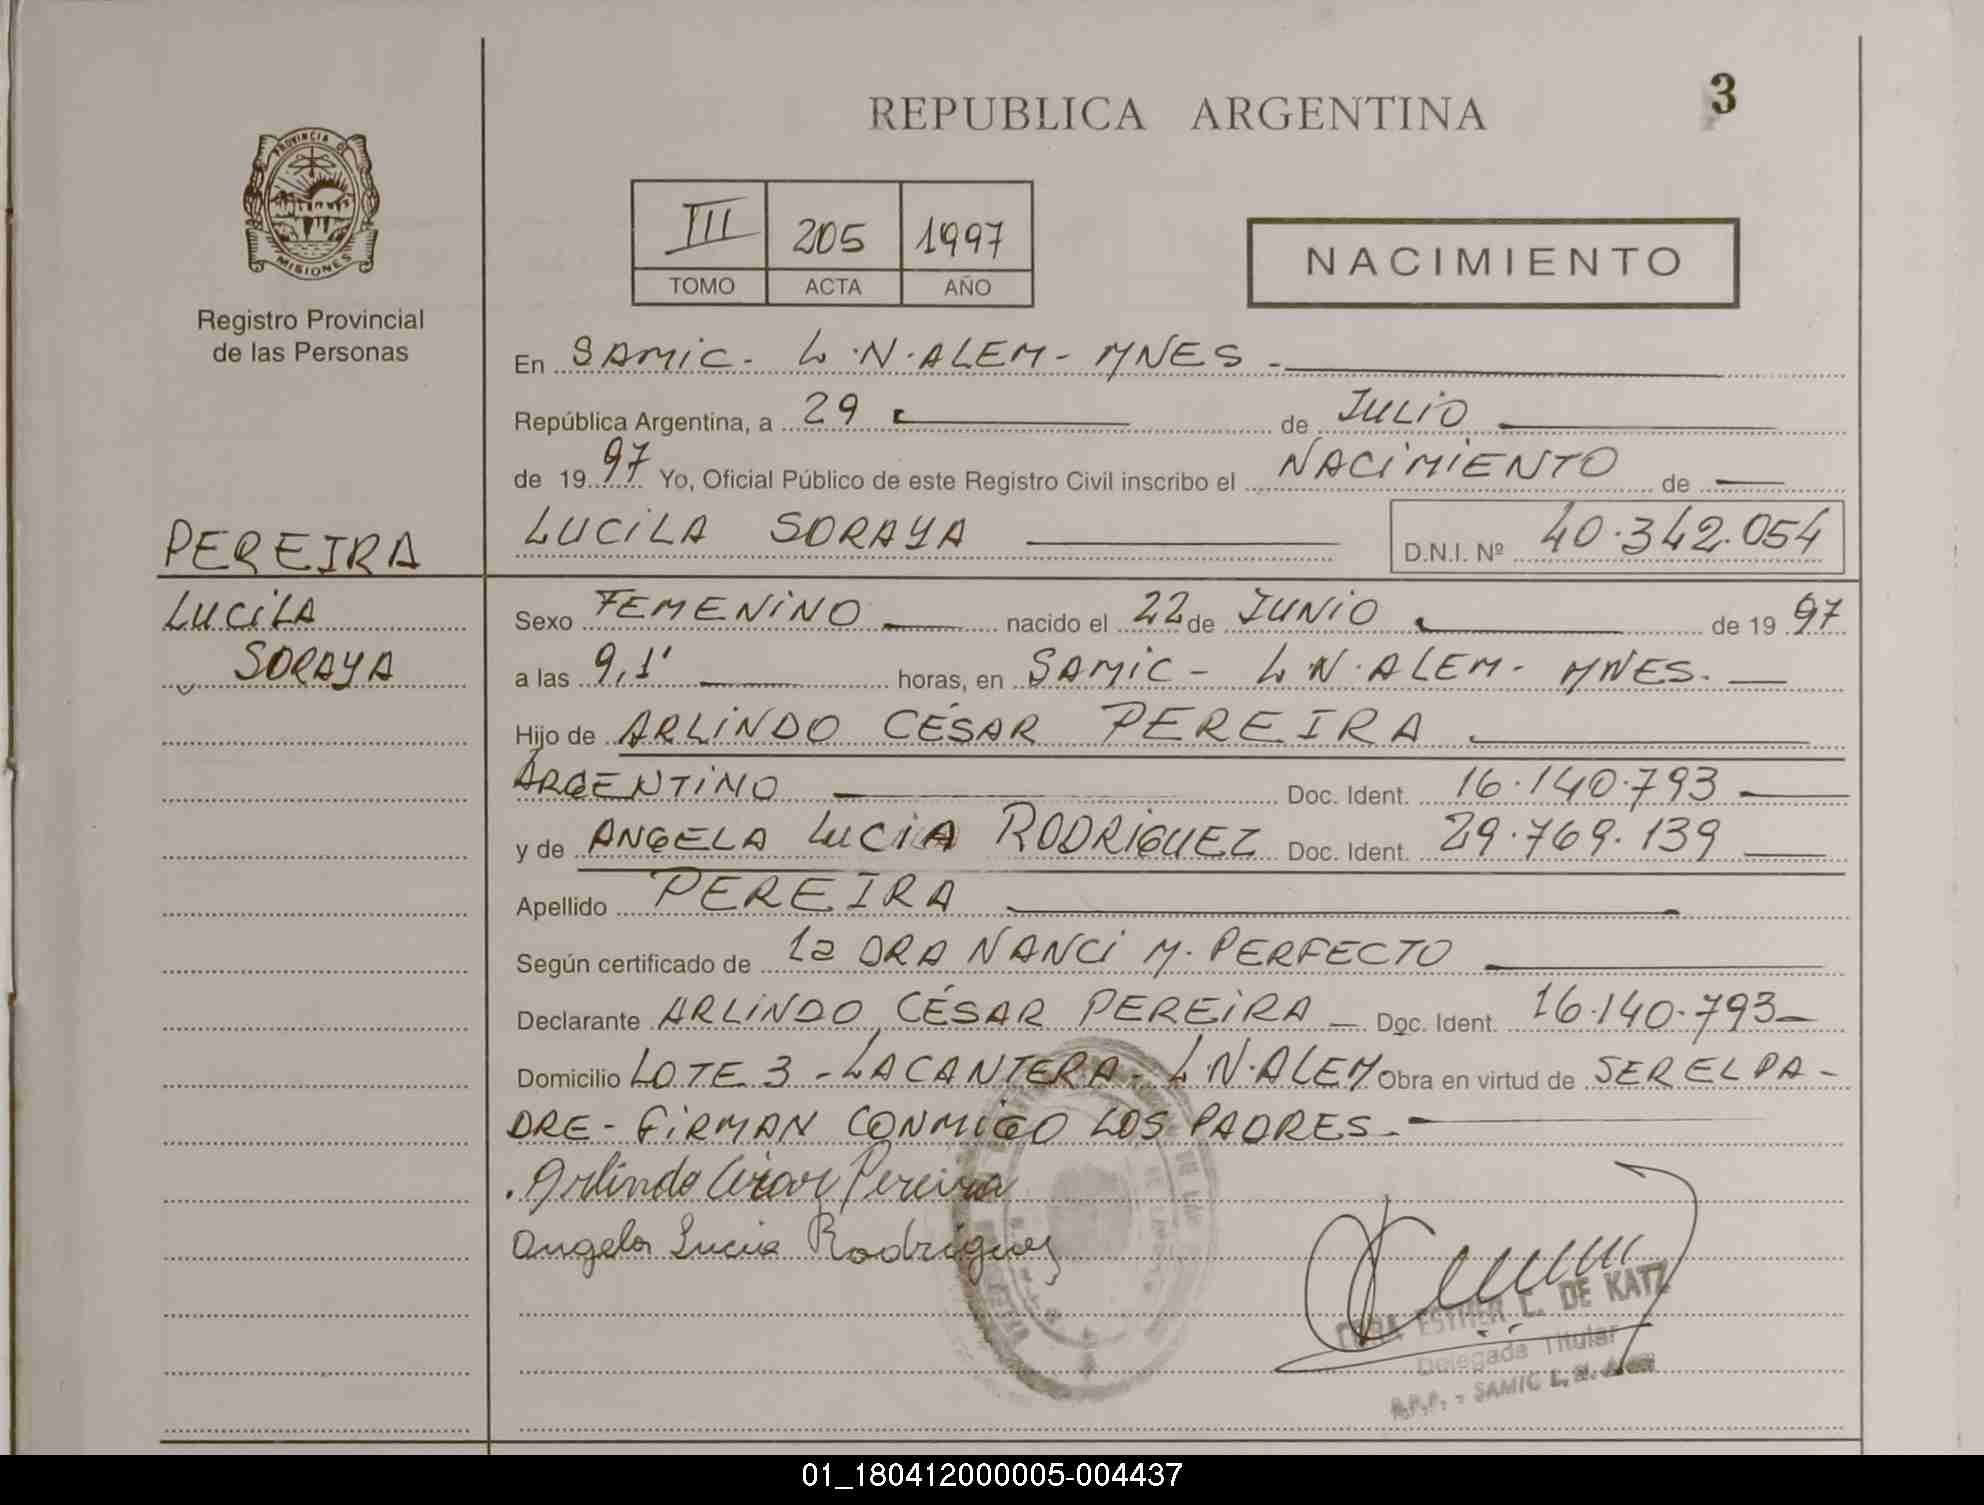 REPUBLICA ARGENTINA
3
PROVINCIA D
MISIONES
Registro Provincial
de las Personas
III 205 1997
TOMO ACTA AÑO
NACIMIENTO
En SAMIC - L.N. ALEM - MNES -
República Argentina, a 29 de JULIO
de 19 97 Yo, Oficial Público de este Registro Civil inscribo el NACIMIENTO de
LUCILA SORAYA D.N.I. Nº 40.342.054
PEREIRA
LUCILA
SORAYA
Sexo FEMENINO nacido el 22 de JUNIO de 19 97
a las 9,1' horas, en SAMIC - L.N. ALEM - MNES.
Hijo de ARLINDO CÉSAR PEREIRA
ARGENTINO Doc. Ident. 16.140.793
y de ANGELA LUCIA RODRIGUEZ Doc. Ident. 29.769.139
Apellido PEREIRA
Según certificado de la DRA NANCI M. PERFECTO
Declarante ARLINDO CÉSAR PEREIRA Doc. Ident. 16.140.793
Domicilio LOTE 3 - LA CANTERA - L.N. ALEM Obra en virtud de SER EL PA-
DRE - FIRMAN CONMIGO LOS PADRES.
Arlindo Cesar Pereira
Angela Lucia Rodriguez
ESTHER L. DE KATZ
Delegada Titular
R.P.P. - SAMIC L.N. Alem
01_180412000005-004437